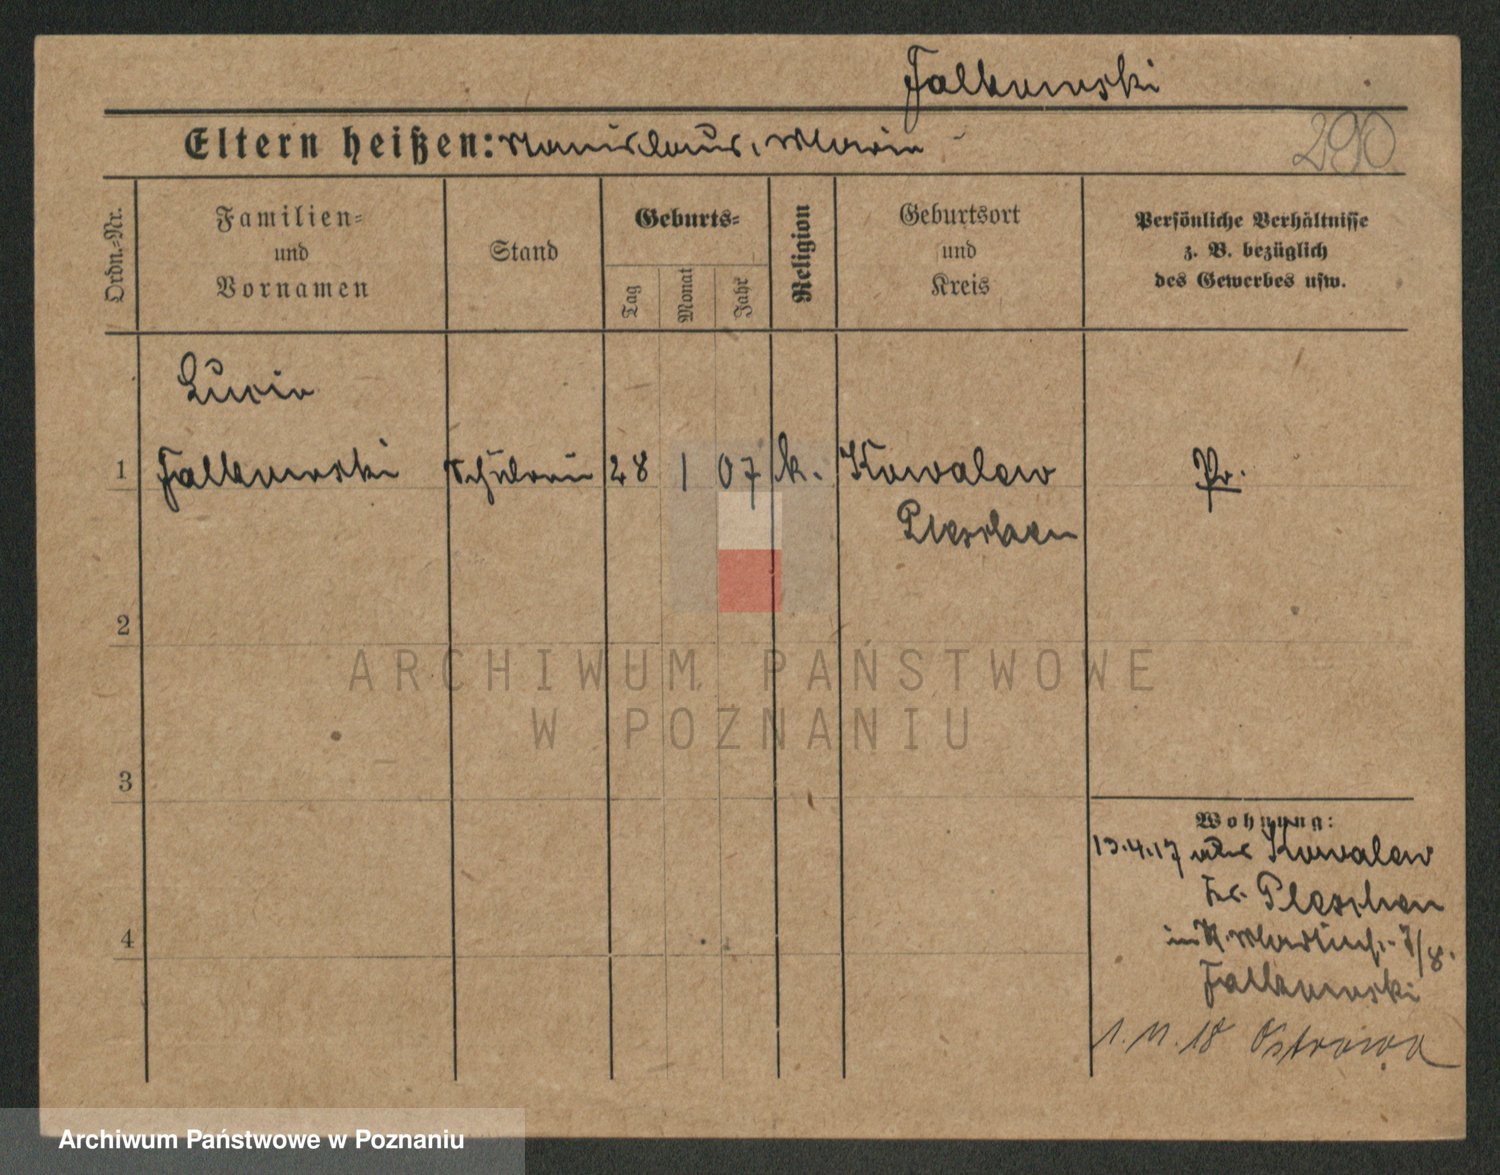 Falkowski
Eltern heißen: Stanislaus, Maria
290
Ordn.-Nr.
Familien-
und
Vornamen
Stand
Geburts-
Tag
Monat
Jahr
Religion
Geburtsort
und
Kreis
Persönliche Verhältnisse
z. B. bezüglich
des Gewerbes usw.
Lucia
1 Falkowski Schülerin 28 1 07 k. Kowalew Pr.
Pleschen
2
ARCHIWUM PAŃSTWOWE
W POZNANIU
3
Wohnung:
13.4.17 aus Kowalew
Kr. Pleschen
in St. Martinstr. 7/8.
Falkowski
1. 11. 18 Ostrowo
4
Archiwum Państwowe w Poznaniu